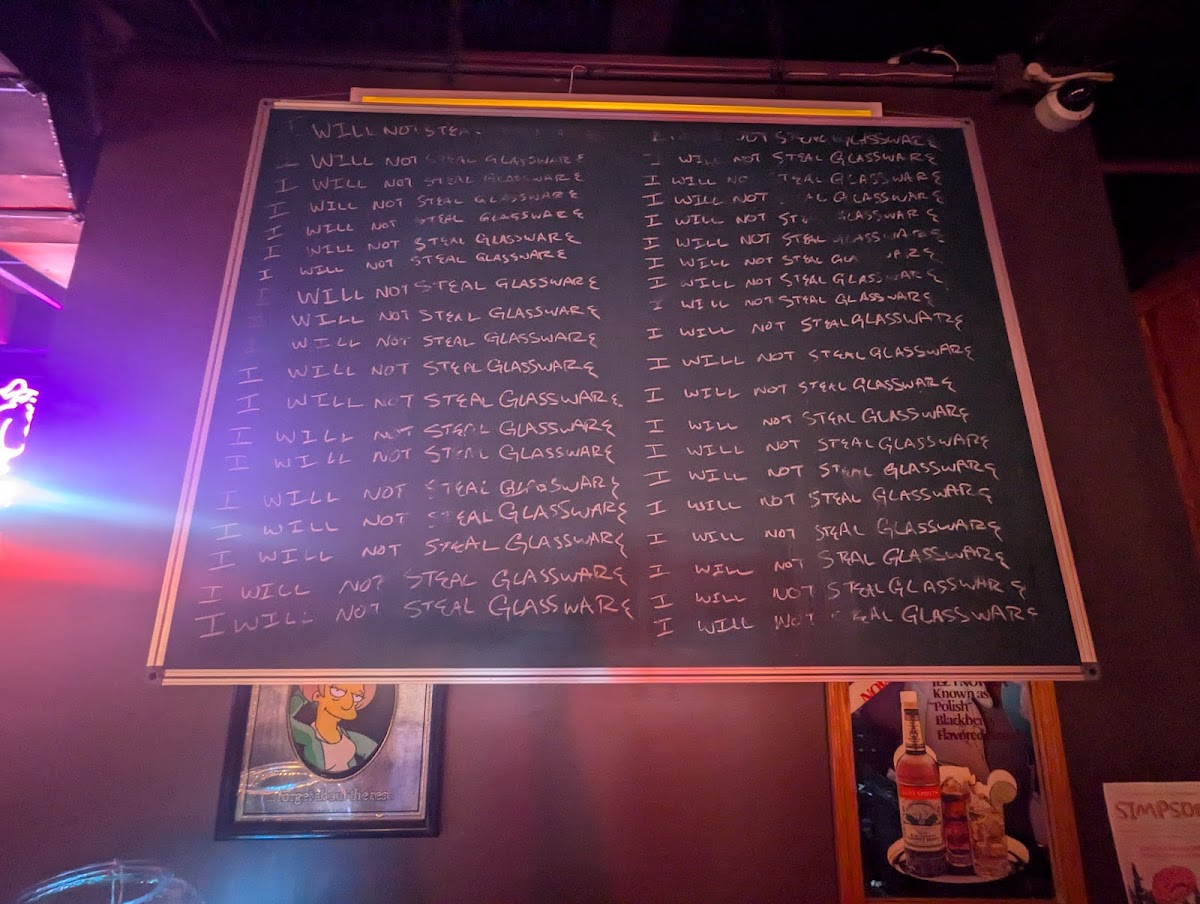 I WILL NOT STEA
I WILL NOT STEAL GLASSWARE
I WILL NOT STEAL GLASSWARE
I WILL NOT STEAL GLASSWARE
I WILL NOT STEAL GLASSWARE
I WILL NOT STEAL GLASSWARE
I WILL NOT STEAL GLASSWARE
I WILL NOT STEAL GLASSWARE
WILL NOT STEAL GLASSWARE
WILL NOT STEAL GLASSWARE
I WILL NOT STEAL GLASSWARE
I WILL NOT STEAL GLASSWARE
I WILL NOT STEAL GLASSWARE
I WILL NOT STEAL GLASSWARE
I WILL NOT STEAL GLASSWARE
I WILL NOT STEAL GLASSWARE
I WILL NOT STEAL GLASSWARE
I WILL NOT STEAL GLASSWARE
I WILL NOT STEAL GLASSWARE
NOT STEAL GLASSWARE
I WILL NOT STEAL GLASSWARE
I WILL NO TEAL GLASSWARE
I WILL NOT AL GLASSWARE
I WILL NOT STE GLASSWARE
I WILL NOT STEAL GLASSWARE
I WILL NOT STEAL GLASSWARE
I WILL NOT STEAL GLASSWARE
I WILL NOT STEAL GLASSWARE
I WILL NOT STEAL GLASSWARE
I WILL NOT STEAL GLASSWARE
I WILL NOT STEAL GLASSWARE
I WILL NOT STEAL GLASSWARE
I WILL NOT STEAL GLASSWARE
I WILL NOT STEAL GLASSWARE
I WILL NOT STEAL GLASSWARE
I WILL NOT STEAL GLASSWARE
I WILL NOT STEAL GLASSWARE
I WILL NOT STEAL GLASSWARE
I WILL NOT STEAL GLASSWARE
...forget about the rest
NOW
Known as
"Polish"
Blackber
Flavored
SIMPSO